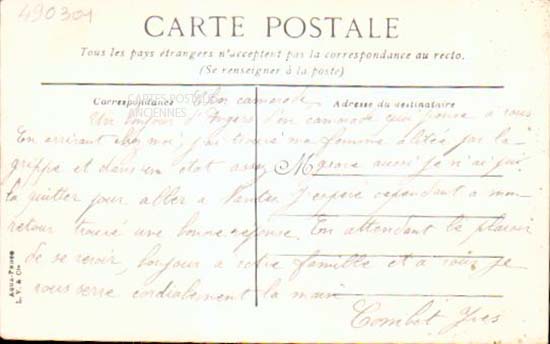 490301
CARTE POSTALE
Tous les pays étrangers n'acceptent pas la correspondance au recto.
(Se renseigner à la poste)
Correspondance
Adresse du destinataire
CARTES POSTALES
ANCIENNES
Mon camarade
Un bonjour d'Angers d'un camarade qui pense a vous
En arrivant chez moi, j'ai trouvé ma femme alitée par la
grippe et dans un état assez grave aussi je n'ai pu
la quitter pour aller a Nantes. J'espère cependant a mon
retour trouvé une bonne reponse. En attendant le plaisir
de se revoir, bonjour a votre famille et a vous je
vous serre cordialement la main
Combot Yves
M
Aqua-Photo
L. V. & Cie